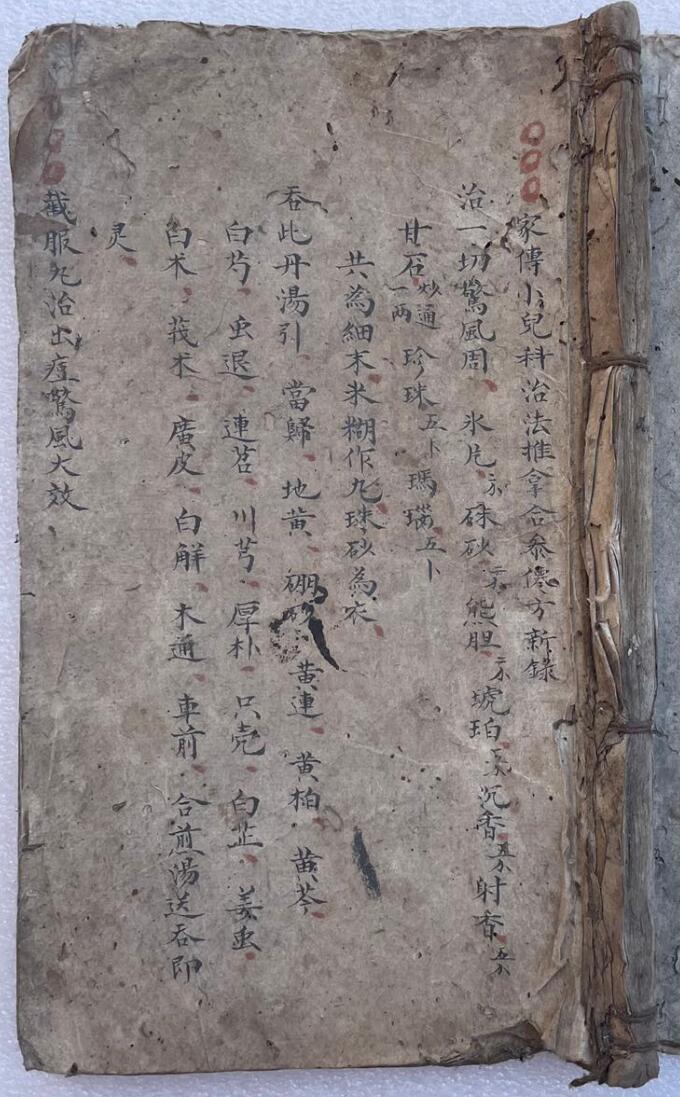 家傳小兒科治法推拿合參僊方新錄
治一切驚風周、氷片、硃砂、熊胆、琥珀、沉香、射香
甘石炒通一兩 珍珠五卜 瑪瑙五卜
共為細末米糊作丸珠砂為衣
吞此丹湯引、當歸、地黄、硼砂、黄連、黄柏、黄芩
白芍、虫退、連召、川芎、厚朴、只壳、白芷、姜虫
白术、莪术、廣皮、白觧、木通、車前、合煎湯送吞即
灵
截服丸治出痘驚風大效